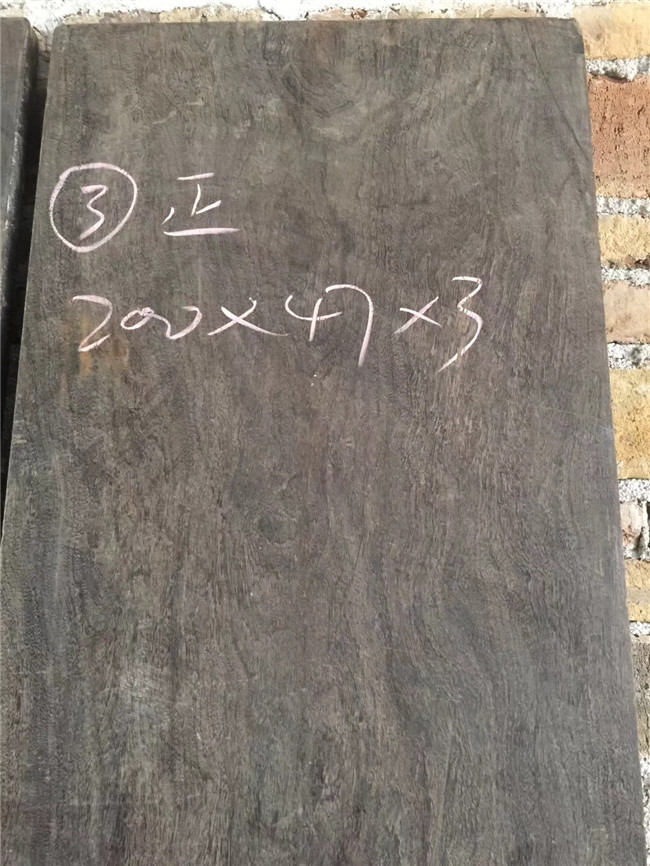 ③ 正
200×47×3